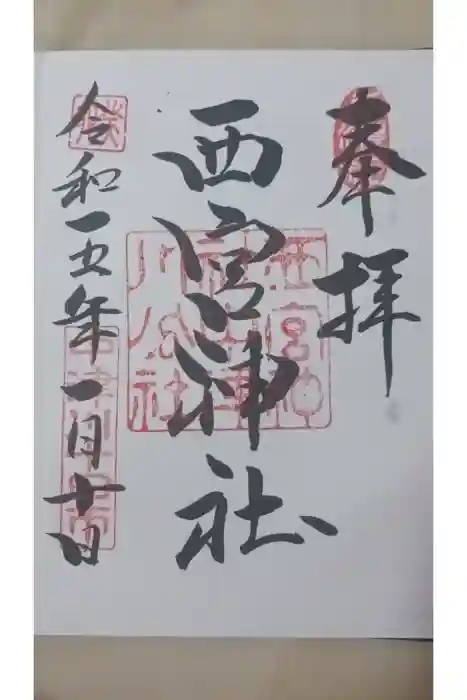 奉拝
西宮神社
令和五年一月十日